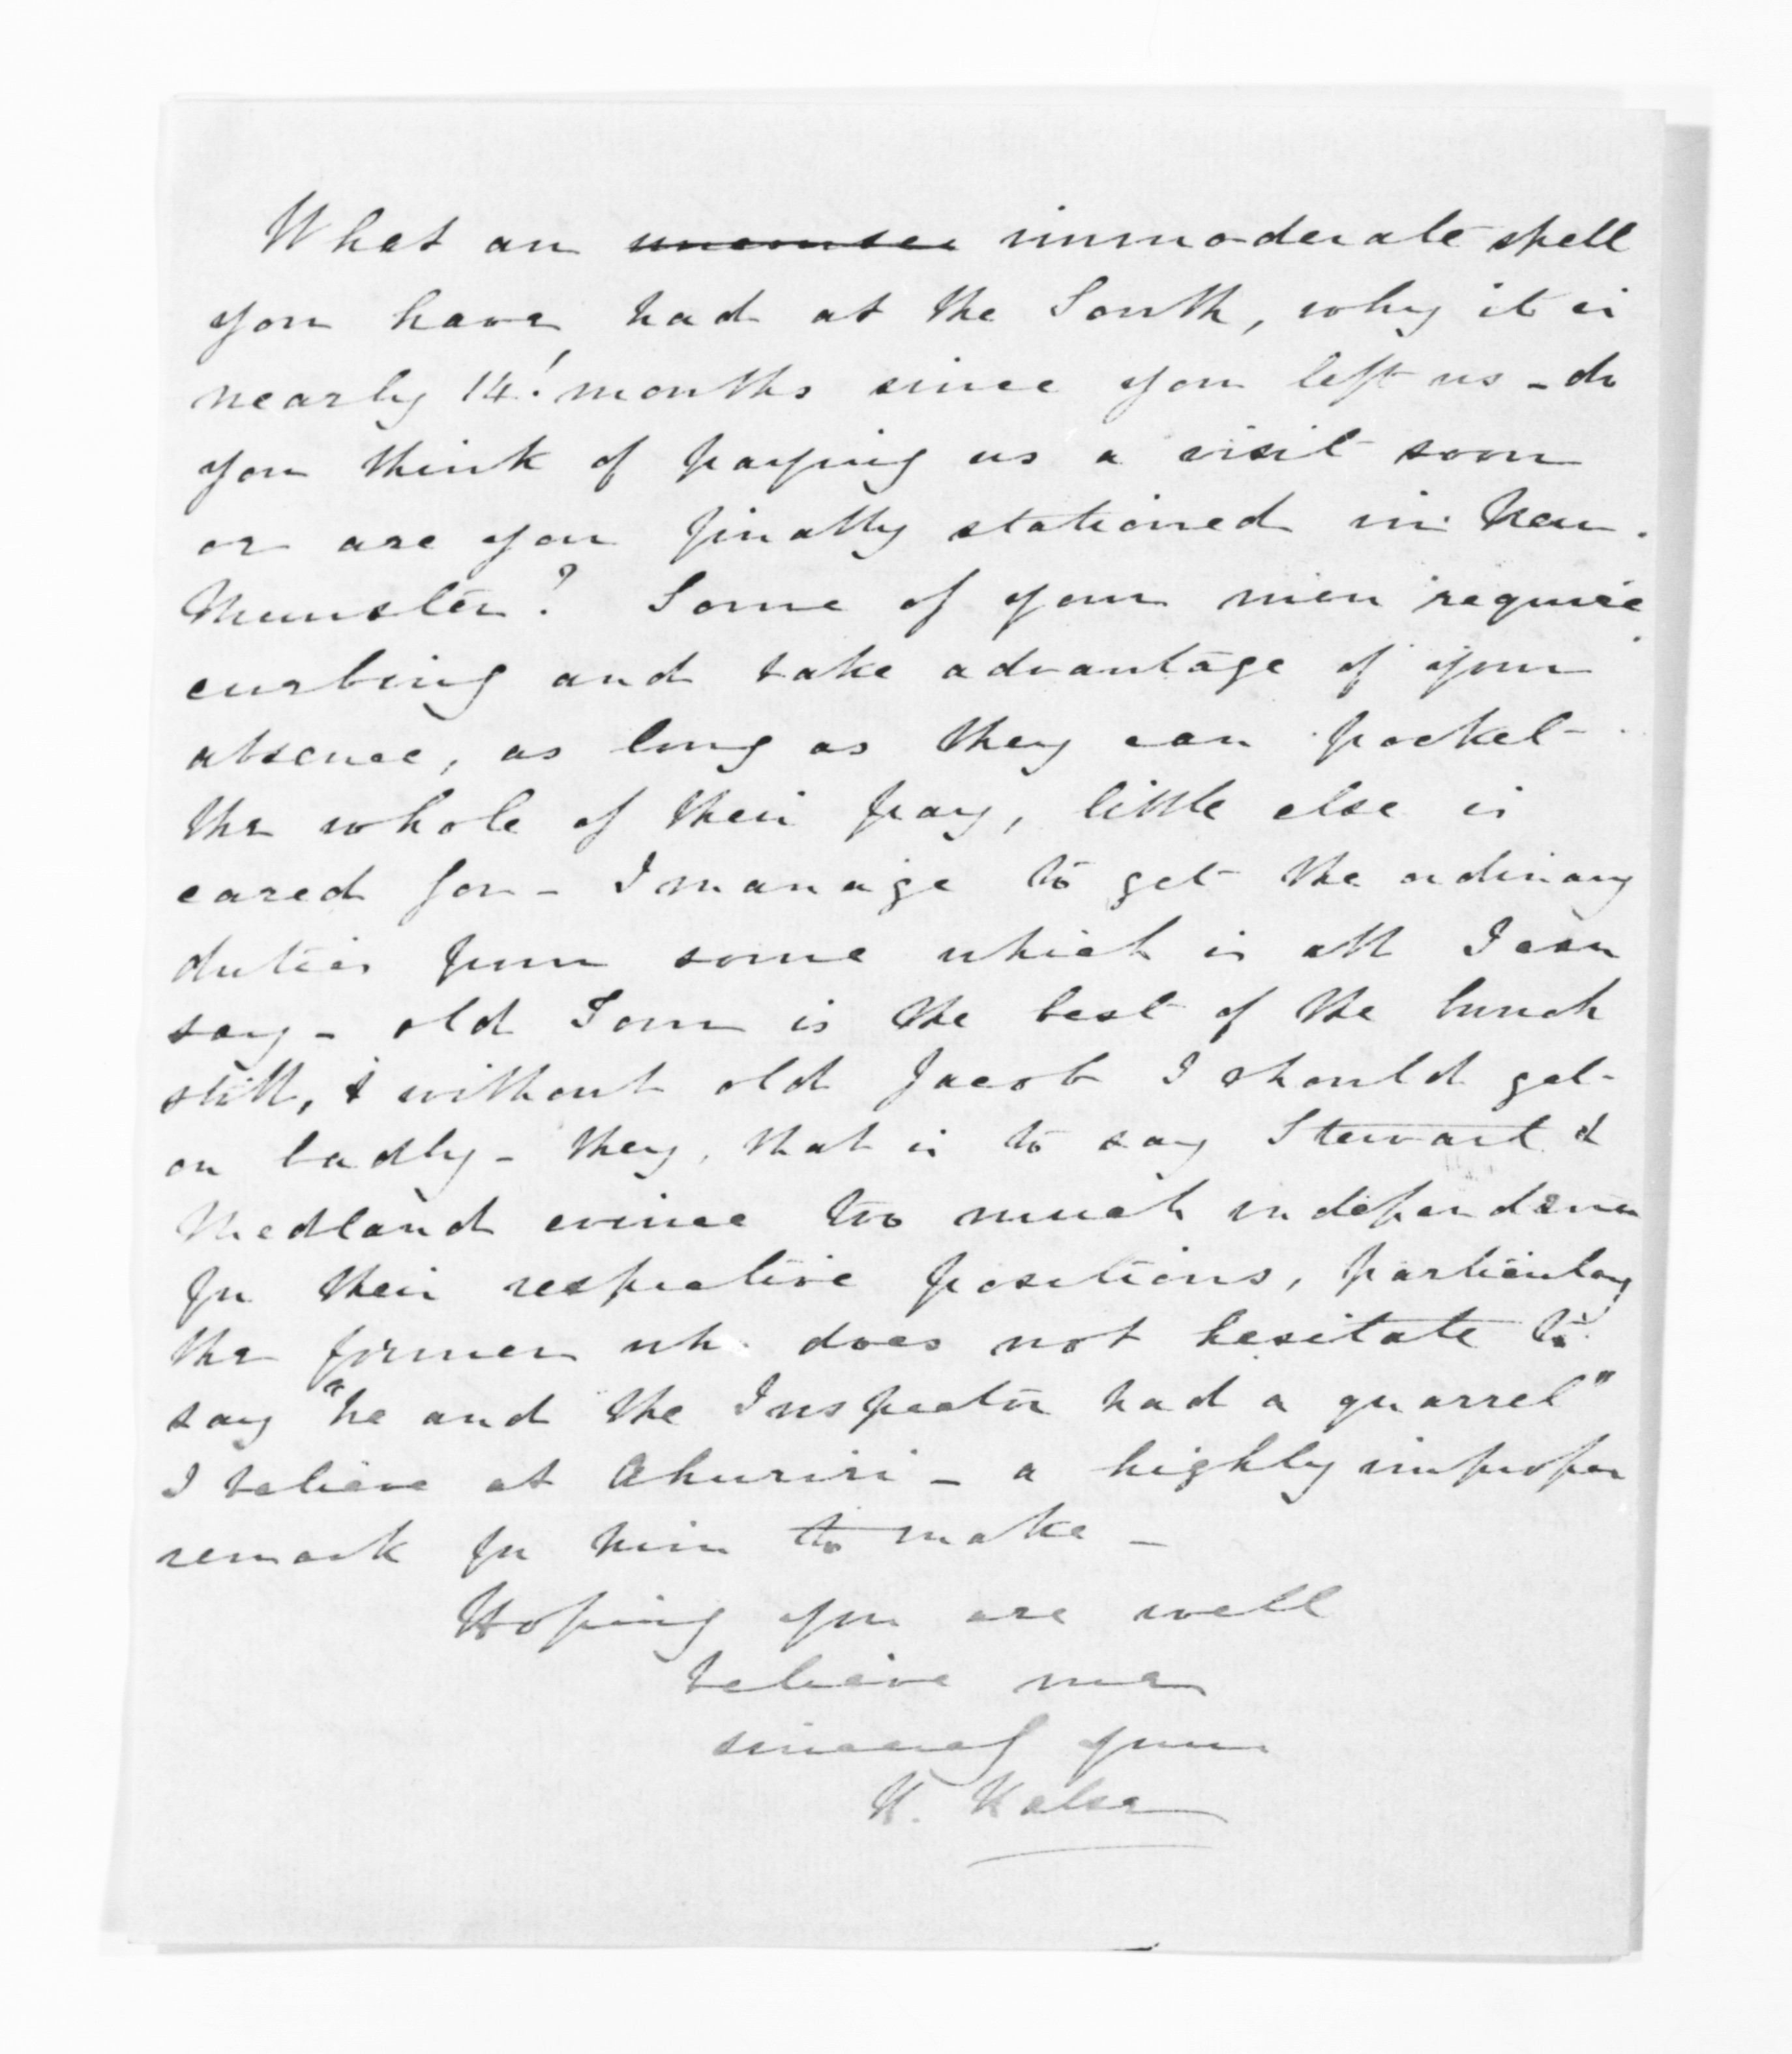 What an immoderate spell
you have had at the South, why it is
nearly 14! months since you left us - do
you think of paying us a visit soon
or are you finally stationed in New
Munster? Some of your men require
curbing and take advantage of your
absence, as long as they can pocket
the whole of their pay, little else is
cared for - I manage to get the ordinary
duties from some which is all I can
say - old Tom is the best of the bunch
still, & without old Jacob I should get
on badly - they, that is to say Stewart &
Medland evince too much independence
for their respective positions, particularly
the former who does not hesitate to
say "he and the Inspector had a quarrel"
I believe at Ahuriri - a highly improper
remark for him to make -
Hoping you are well
believe me
sincerely yours
H. Halse